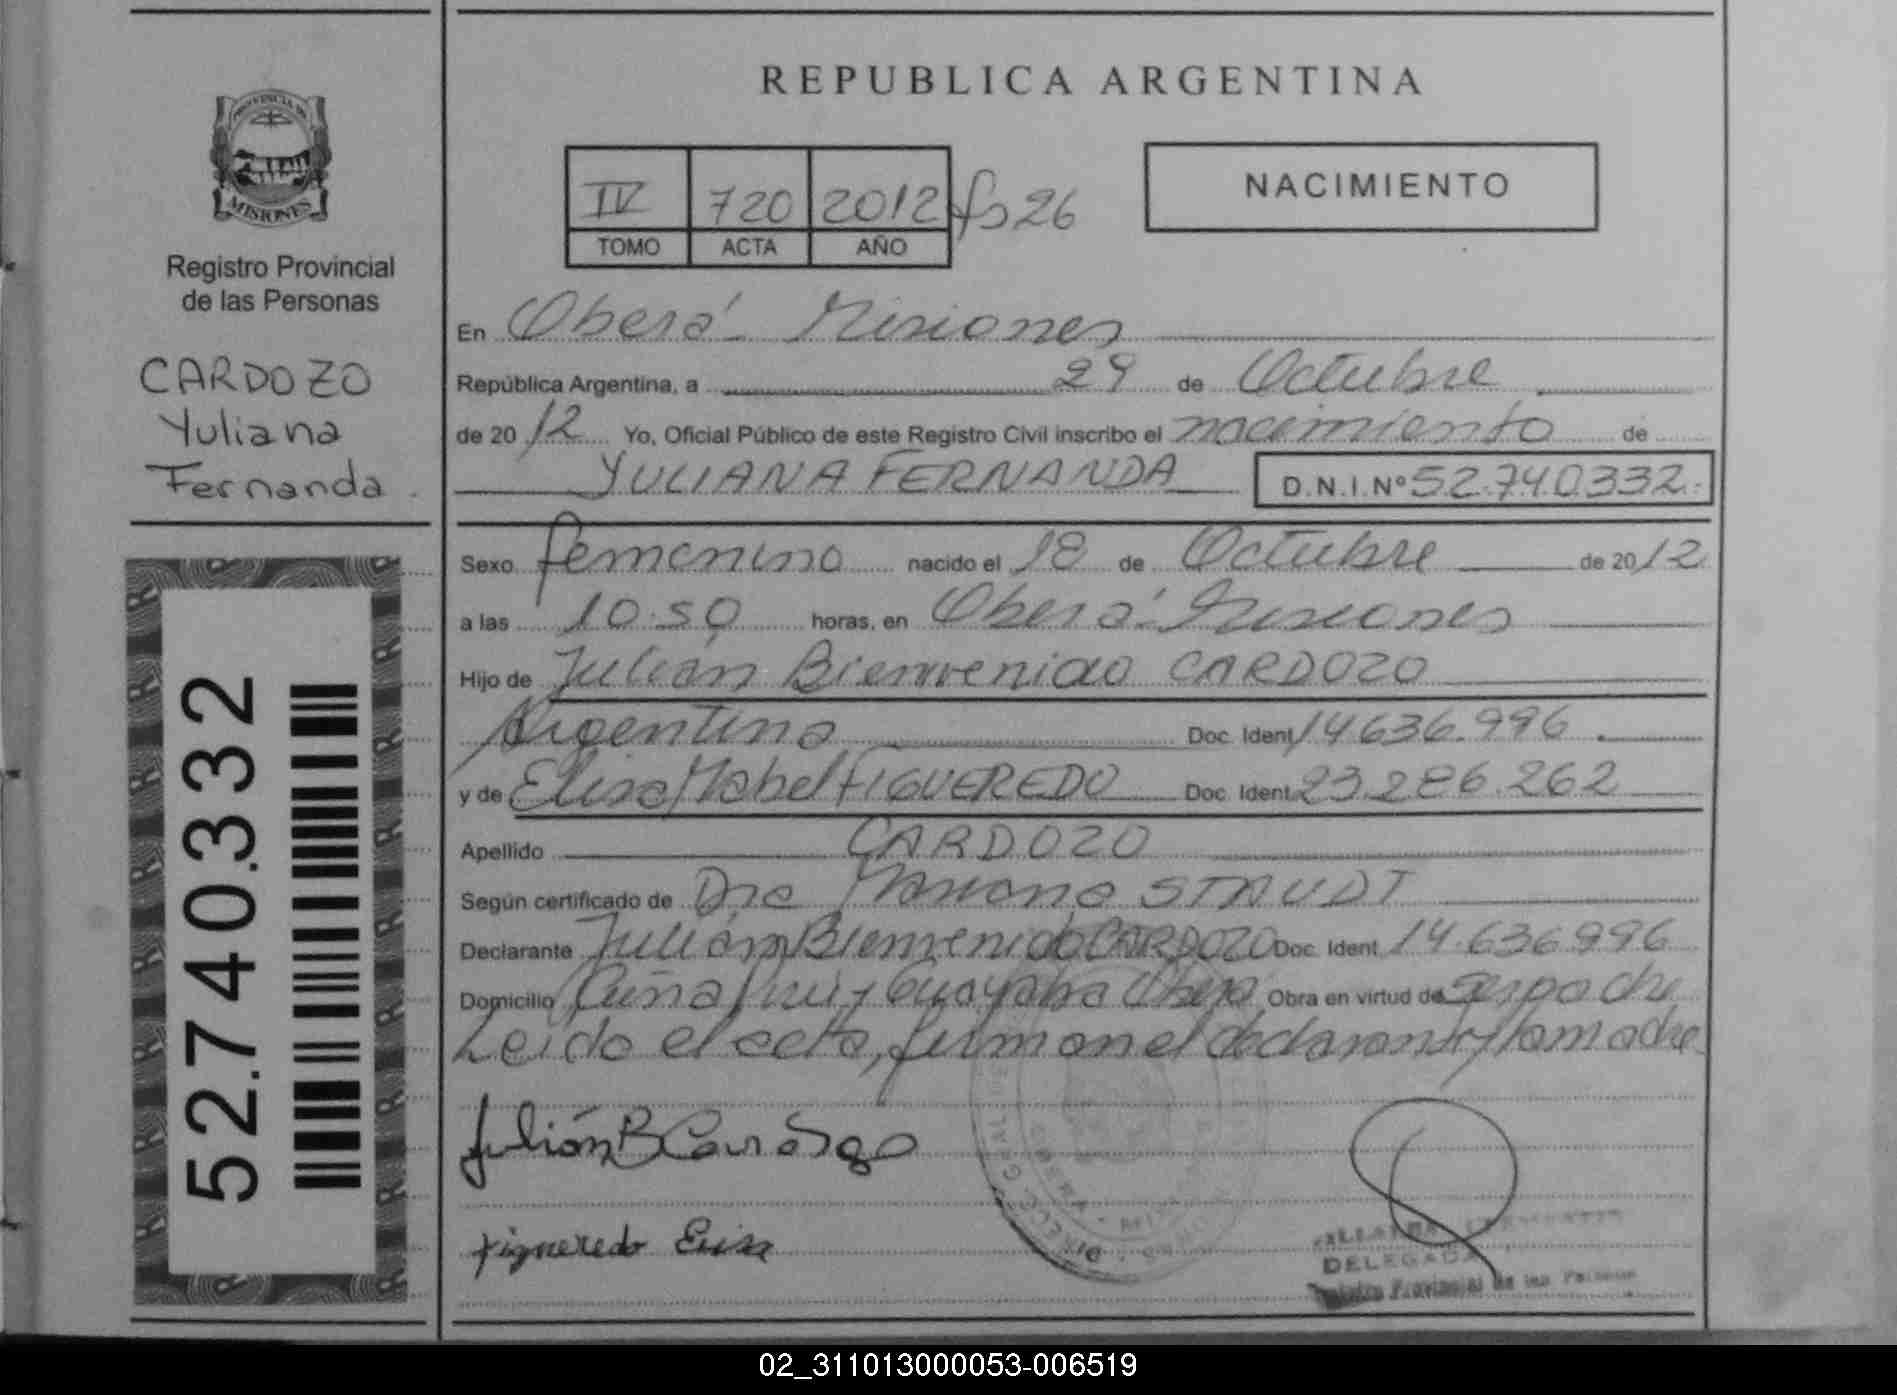 PROVINCIA DE
MISIONES
Registro Provincial
de las Personas
CARDOZO
Yuliana
Fernanda.
52.740.332
REPUBLICA ARGENTINA
IV 720 2012 fs 26
TOMO ACTA AÑO
NACIMIENTO
En Oberá - Misiones
República Argentina, a 29 de Octubre
de 2012 Yo, Oficial Público de este Registro Civil inscribo el nacimiento de
YULIANA FERNANDA D.N.I.Nº 52.740.332.
Sexo femenino nacido el 18 de Octubre de 2012
a las 10.50 horas, en Oberá - Misiones
Hijo de Julián Bienvenido CARDOZO
Argentina Doc. Ident. 14.636.996
y de Elisa Mabel FIGUEREDO Doc. Ident. 23.286.262
Apellido CARDOZO
Según certificado de Dra Mariana STAUDT
Declarante Julián Bienvenido CARDOZO Doc. Ident. 14.636.996
Domicilio Guayaba Oberá Obra en virtud de ser padre
Leído el acta, firman el declarante y la madre
Julián B Cardozo
Figueredo Elisa
DELEGADA
Registro Provincial de las Personas
02_311013000053-006519